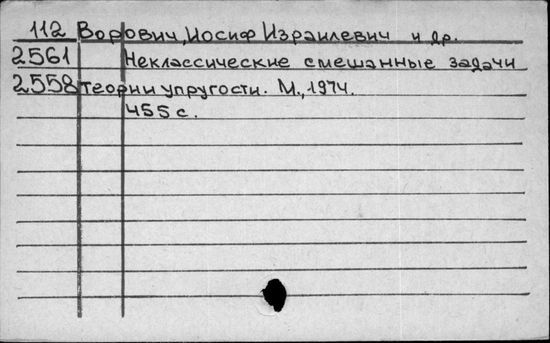 112 Ворович, Иосиф Израилевич и др.
2561 Неклассические смешанные задачи
2558 теории упругости. М., 1974.
455 с.